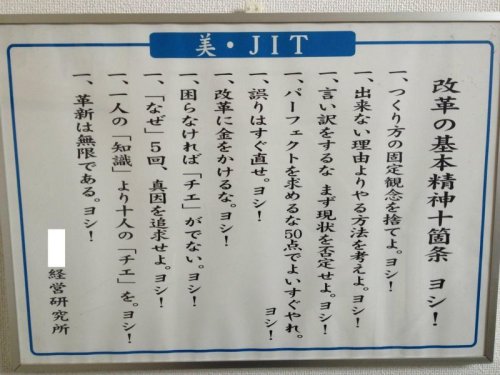 美・JIT
改革の基本精神十箇条 ヨシ！
一、つくり方の固定観念を捨てよ。ヨシ！
一、出来ない理由よりやる方法を考えよ。ヨシ！
一、言い訳をするな まず現状を否定せよ。ヨシ！
一、パーフェクトを求めるな50点でよいすぐやれ。
ヨシ！
一、誤りはすぐ直せ。ヨシ！
一、改革に金をかけるな。ヨシ！
一、困らなければ「チエ」がでない。ヨシ！
一、「なぜ」5回、真因を追求せよ。ヨシ！
一、一人の「知識」より十人の「チエ」を。ヨシ！
一、革新は無限である。ヨシ！
経営研究所